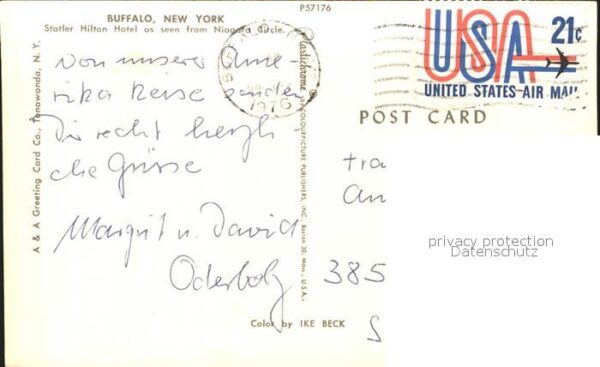 P57176
BUFFALO, NEW YORK
Statler Hilton Hotel as seen from Niagara Circle.
A & A Greeting Card Co., Tonawanda, N. Y.
Von unserer Ame-
rika Reise senden
Dir recht herzli-
che Grüsse
Margrit u. David
Oderbolz
Plastichrome
BY COLOURPICTURE PUBLISHERS, INC., Boston 30, Mass., U.S.A.
Color by IKE BECK
1976
USA 21c
UNITED STATES AIR MAIL
POST CARD
385
S
privacy protection
Datenschutz